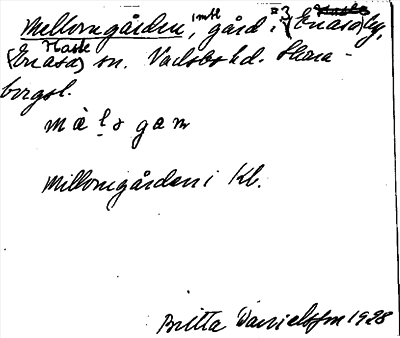 Mellomgården, 1 mtl gård i (Enåsa) by,
(Enåsa) Hassle sn. Vadsbo hd. Skara-
borgsl.
mȧ l s gam
Mellomgården i Kb.
Britta Danielsson 1928